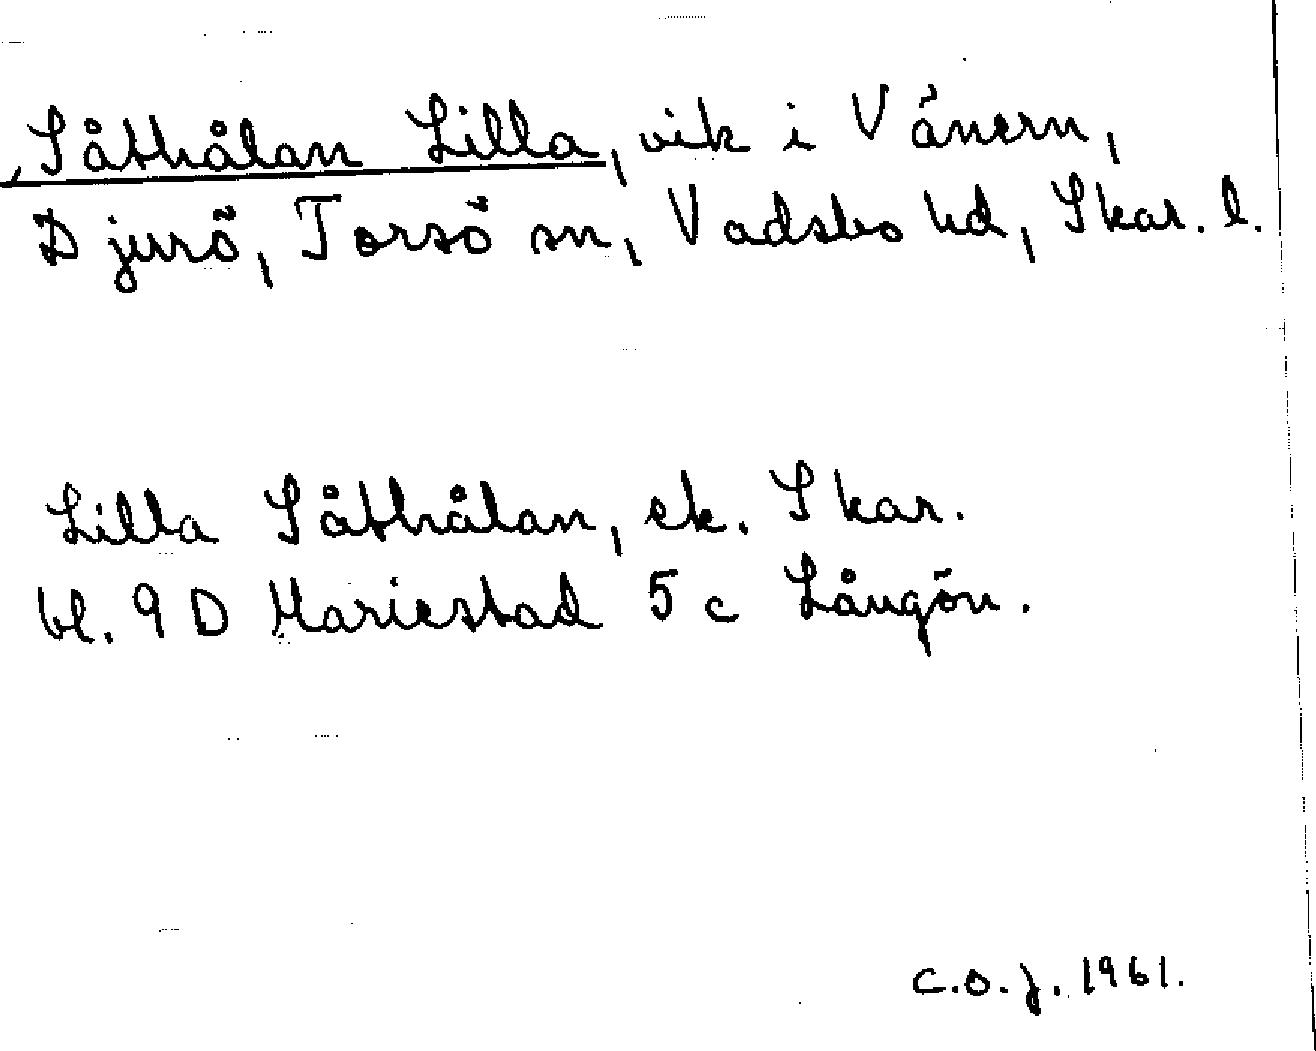 Såthålan Lilla, vik i Vänern,
Djurö, Torsö sn, Vadsbo hd, Skar. l.
Lilla Såthålan, ek. Skar.
bl. 9 D Mariestad 5 c Långön.
C.O.J. 1961.